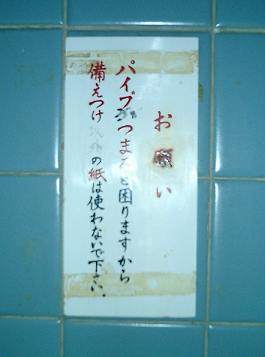 お願い
パイプがつまると困りますから
備えつけ以外の紙は使わないで下さい。